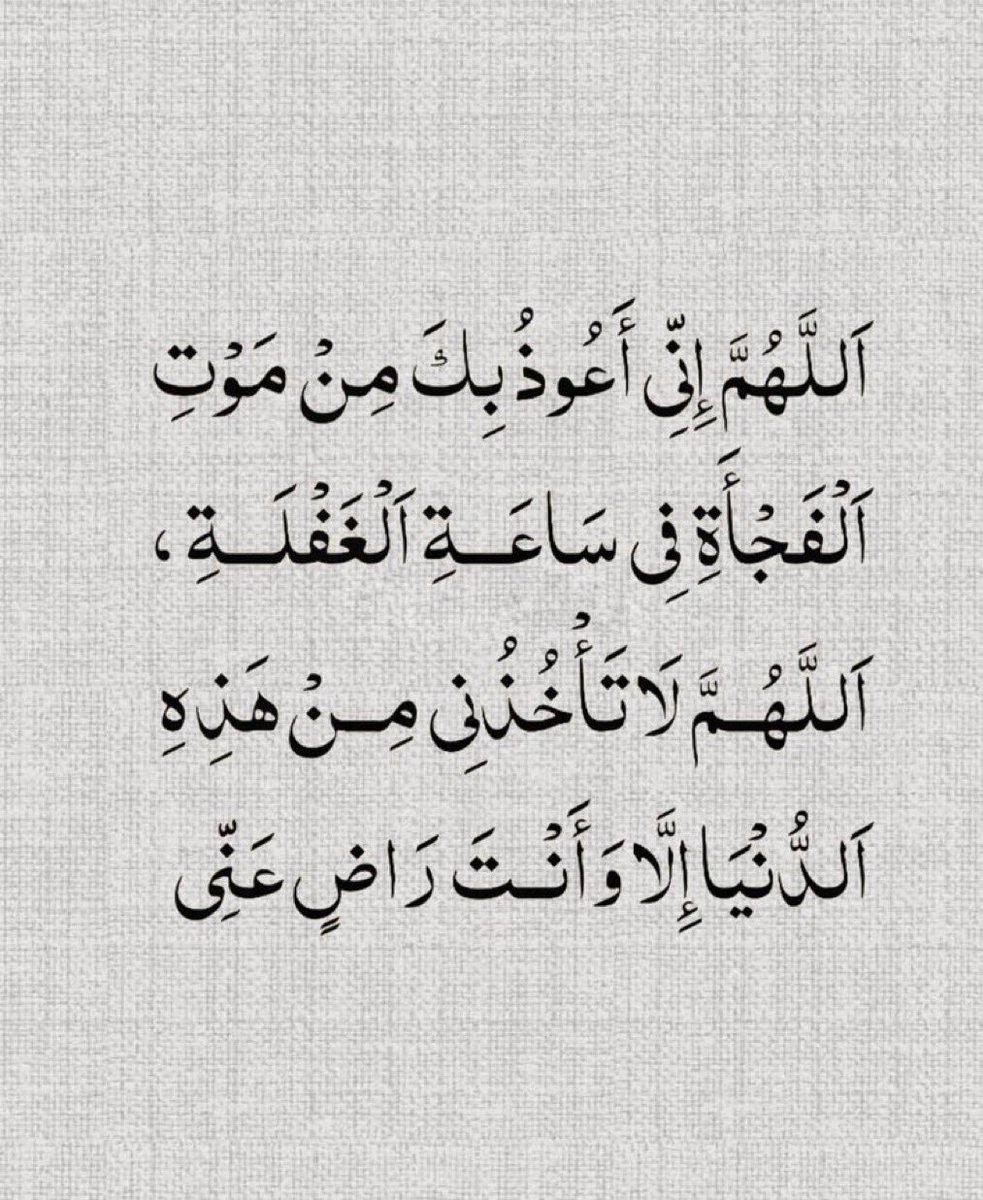 اَللَّهُمَّ إِنِّي أَعُوذُ بِكَ مِنْ مَوْتِ
اَلْفَجْأَةِ فِي سَاعَـةِ اَلْغَفْلَـةِ ،
اَللَّهُـمَّ لَا تَأْخُذُنِي مِـنْ هَذِهِ
اَلدُّنْيَا إِلَّا وَأَنْـتَ رَاضٍ عَنِّي